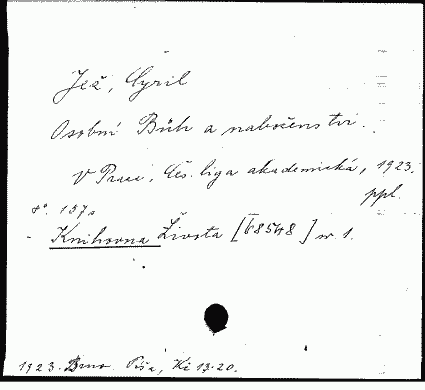 Jež, Cyril
Osobní Bůh a náboženství.
V Praze, Čes. liga akademická, 1923.
ppl.
8°. 157 s
Knihovna Života [68548] sv. 1.
1923. Brno. Píša, Kč 13.20.